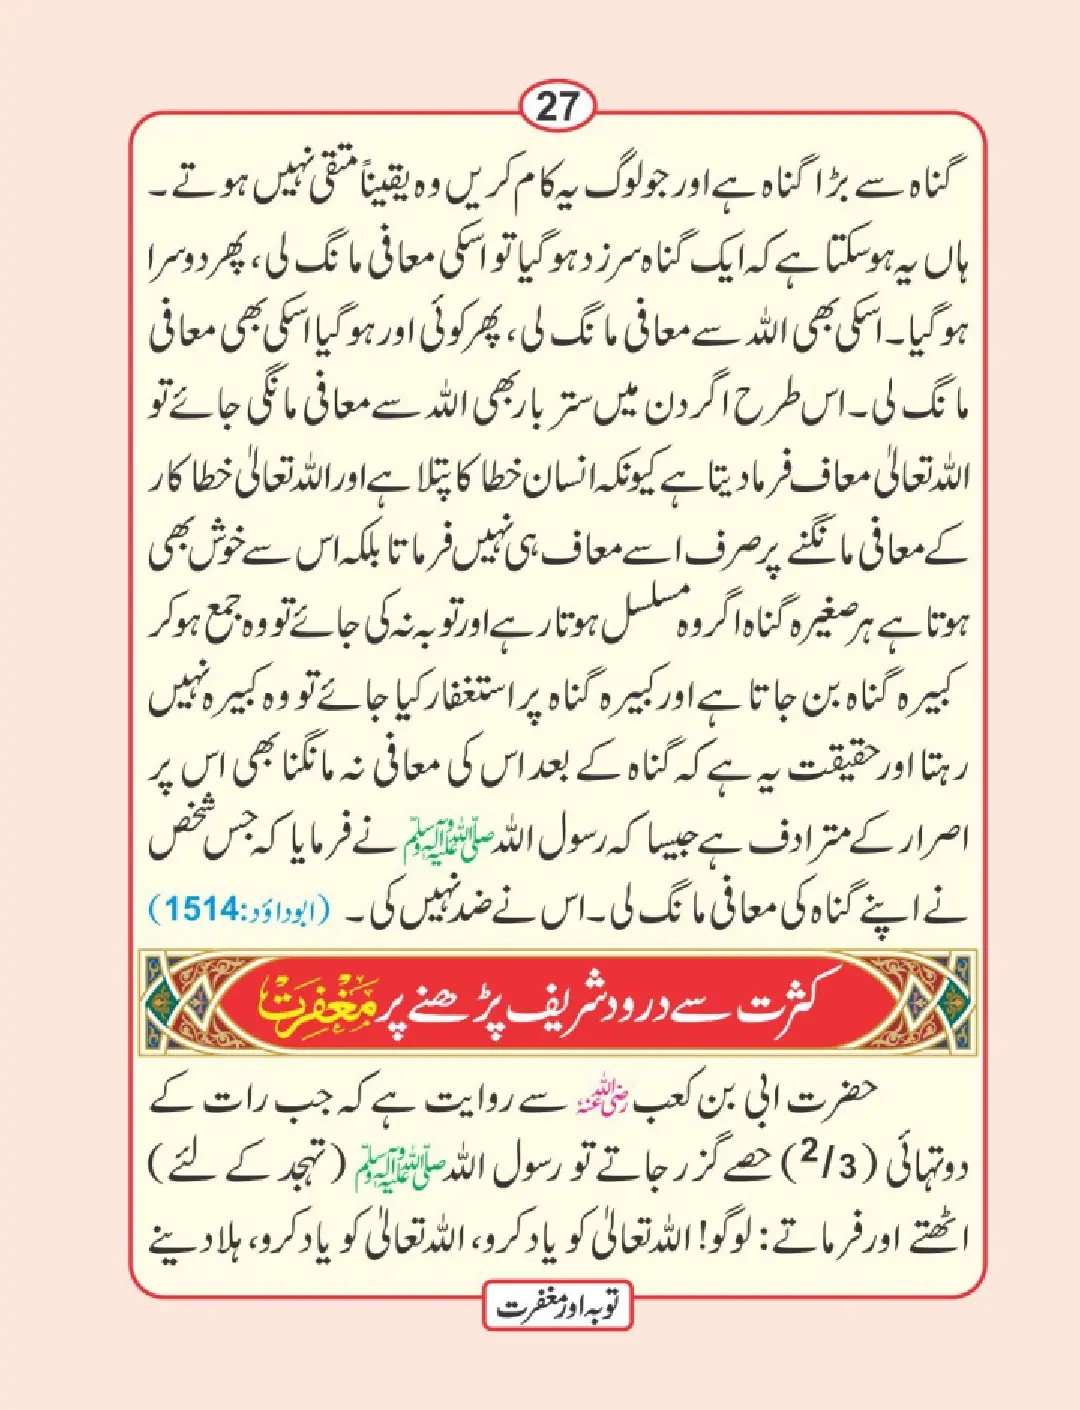 27
گناہ سے بڑا گناہ ہے اور جو لوگ یہ کام کریں وہ یقیناً متقی نہیں ہوتے۔
ہاں یہ ہوسکتا ہے کہ ایک گناہ سرزد ہوگیا تو اسکی معافی مانگ لی، پھر دوسرا
ہوگیا۔ اسکی بھی اللہ سے معافی مانگ لی، پھر کوئی اور ہوگیا اسکی بھی معافی
مانگ لی۔ اس طرح اگر دن میں ستر بار بھی اللہ سے معافی مانگی جائے تو
اللہ تعالیٰ معاف فرما دیتا ہے کیونکہ انسان خطا کا پتلا ہے اور اللہ تعالیٰ خطا کار
کے معافی مانگنے پر صرف اسے معاف ہی نہیں فرماتا بلکہ اس سے خوش بھی
ہوتا ہے ہر صغیرہ گناہ اگر وہ مسلسل ہوتا رہے اور توبہ نہ کی جائے تو وہ جمع ہوکر
کبیرہ گناہ بن جاتا ہے اور کبیرہ گناہ پر استغفار کیا جائے تو وہ کبیرہ نہیں
رہتا اور حقیقت یہ ہے کہ گناہ کے بعد اس کی معافی نہ مانگنا بھی اس پر
اصرار کے مترادف ہے جیسا کہ رسول اللہ صلی اللہ علیہ وآلہ وسلم نے فرمایا کہ جس شخص
نے اپنے گناہ کی معافی مانگ لی۔ اس نے ضد نہیں کی۔ (ابوداؤد:1514)
کثرت سے درود شریف پڑھنے پر مَغْفِرَت
حضرت ابی بن کعب رضی اللہ عنہ سے روایت ہے کہ جب رات کے
دو تہائی (2/3) حصے گزر جاتے تو رسول اللہ صلی اللہ علیہ وآلہ وسلم (تہجد کے لئے)
اٹھتے اور فرماتے: لوگو! اللہ تعالیٰ کو یاد کرو، اللہ تعالیٰ کو یاد کرو، ہلا دینے
توبہ اور مغفرت